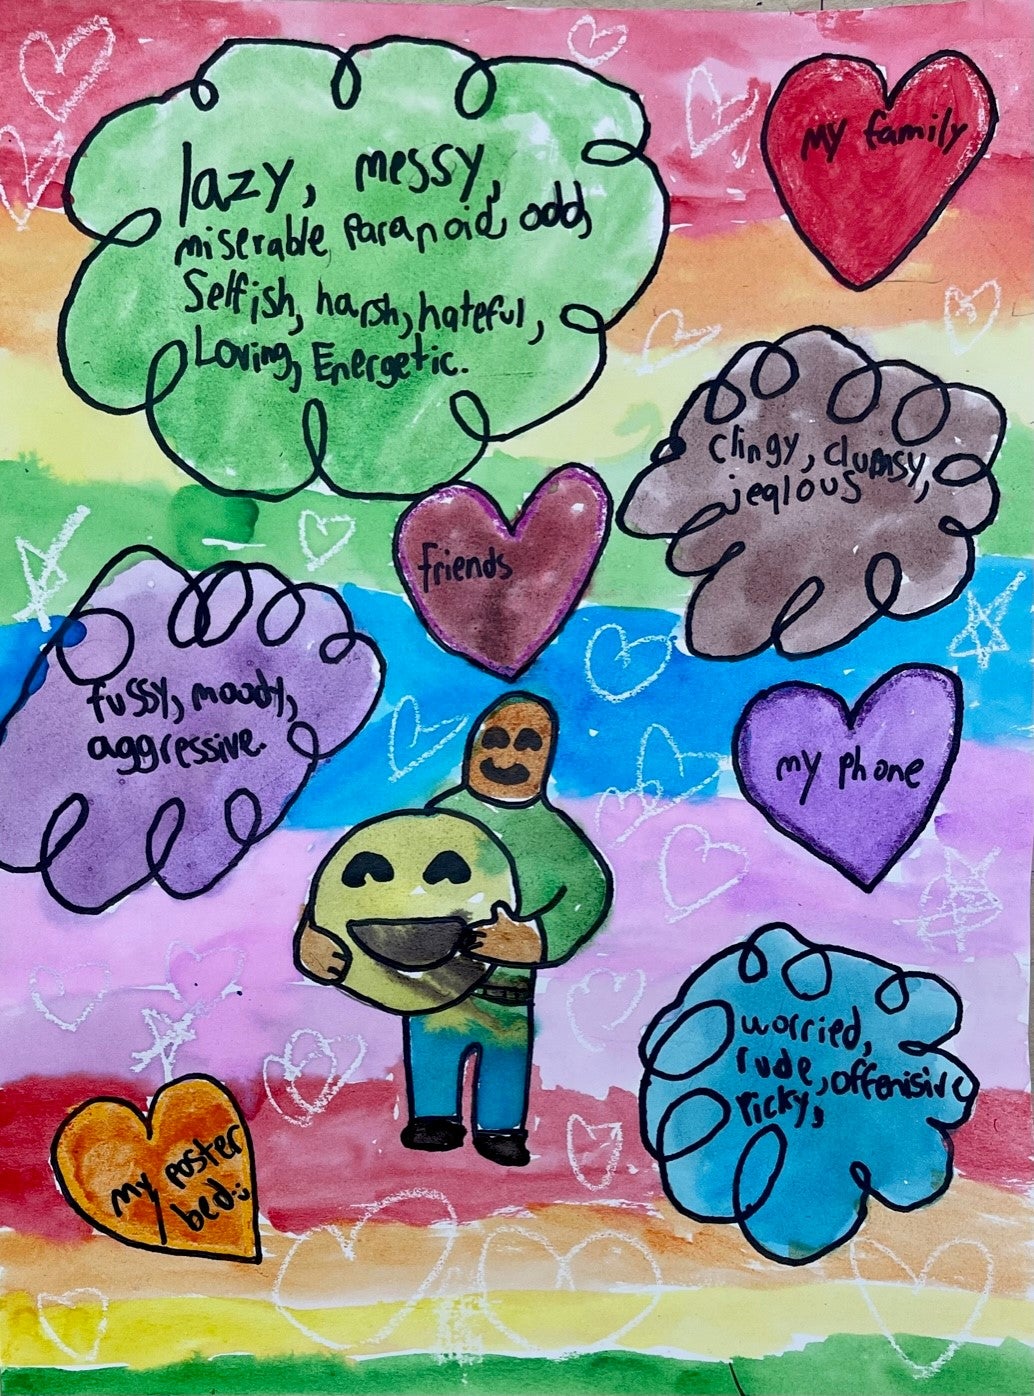 lazy, messy,
miserable paranoid, odd,
Selfish, harsh, hateful,
Loving, Energetic.
my family
clingy, clumsy,
jealous
friends
fussy, moody,
aggressive.
my phone
worried,
rude, offenisive
Picky,
my poster
bed:)